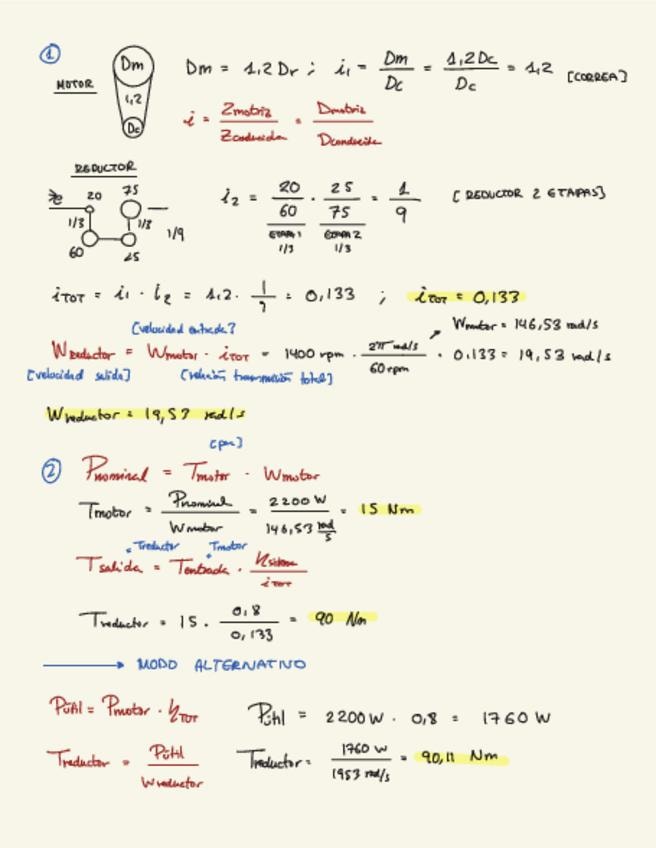 ①
MOTOR
Dm
1,2
Dc
Dm = 1,2 Dr ; i₁ = Dm/Dc = 1,2 Dc/Dc = 1,2 [CORREA]
i = Zmotriz/Zconducida = Dmotriz/Dconducida
REDUCTOR
20 75
1/3 1/3 1/9
60 25
i₂ = 20/60 · 25/75 = 1/9 [REDUCTOR 2 ETAPAS]
ETAPA 1 ETAPA 2
1/3 1/3
iTOT = i₁ · i₂ = 1,2 · 1/9 = 0,133 ; iTOT = 0,133
[velocidad entrada] Wmotor = 146,53 rad/s
Wreductor = Wmotor · iTOT = 1400 rpm · 2π rad/s / 60 rpm · 0.133 = 19,53 rad/s
[velocidad salida] [relación transmisión total]
Wreductor = 19,53 rad/s
② [par]
Pnominal = Tmotor · Wmotor
Tmotor = Pnominal/Wmotor = 2200 W / 146,53 rad/s = 15 Nm
Treductor Tmotor
Tsalida = Tentrada · ηsistema/iTOT
Treductor = 15 · 0,8/0,133 = 90 Nm
→ MODO ALTERNATIVO
Pútil = Pmotor · ηTOT Pútil = 2200 W · 0,8 = 1760 W
Treductor = Pútil/Wreductor Treductor = 1760 W / 1953 rad/s = 90,11 Nm